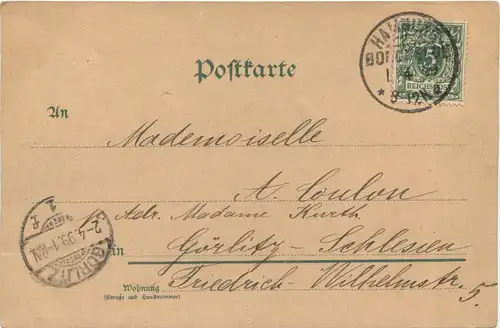 Postkarte
HAMBURG
5
REICHSPOST
* 8-12N *
An
Mademoiselle
A. Coulon
Adr. Madame Kurth
in Görlitz-Schlesien
Friedrich-Wilhelmstr. 5
Wohnung
(Straße und Hausnummer)
GÖRLITZ
2-4.99.1-2N.